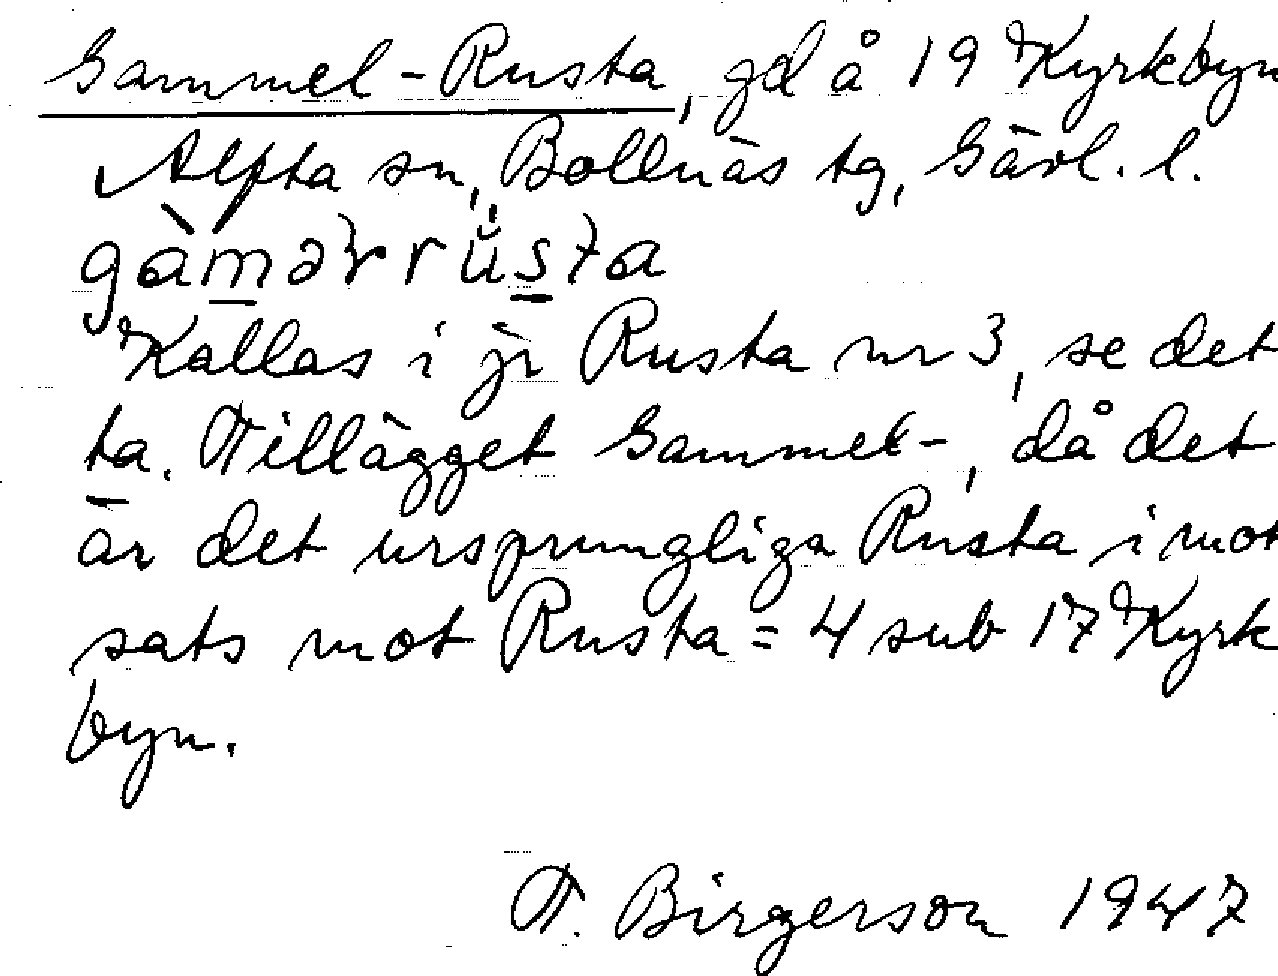 Gammel-Rusta, gd å 19 Kyrkbyn
Alfta sn, Bollnäs tg, Gävl. l.
Kallas i jr Rusta nr 3, se det
ta. Tillägget Gammel-, då det
är det ursprungliga Rusta i mot
sats mot Rusta = 4 sub 17 Kyrk
byn.
T. Birgerson 1947